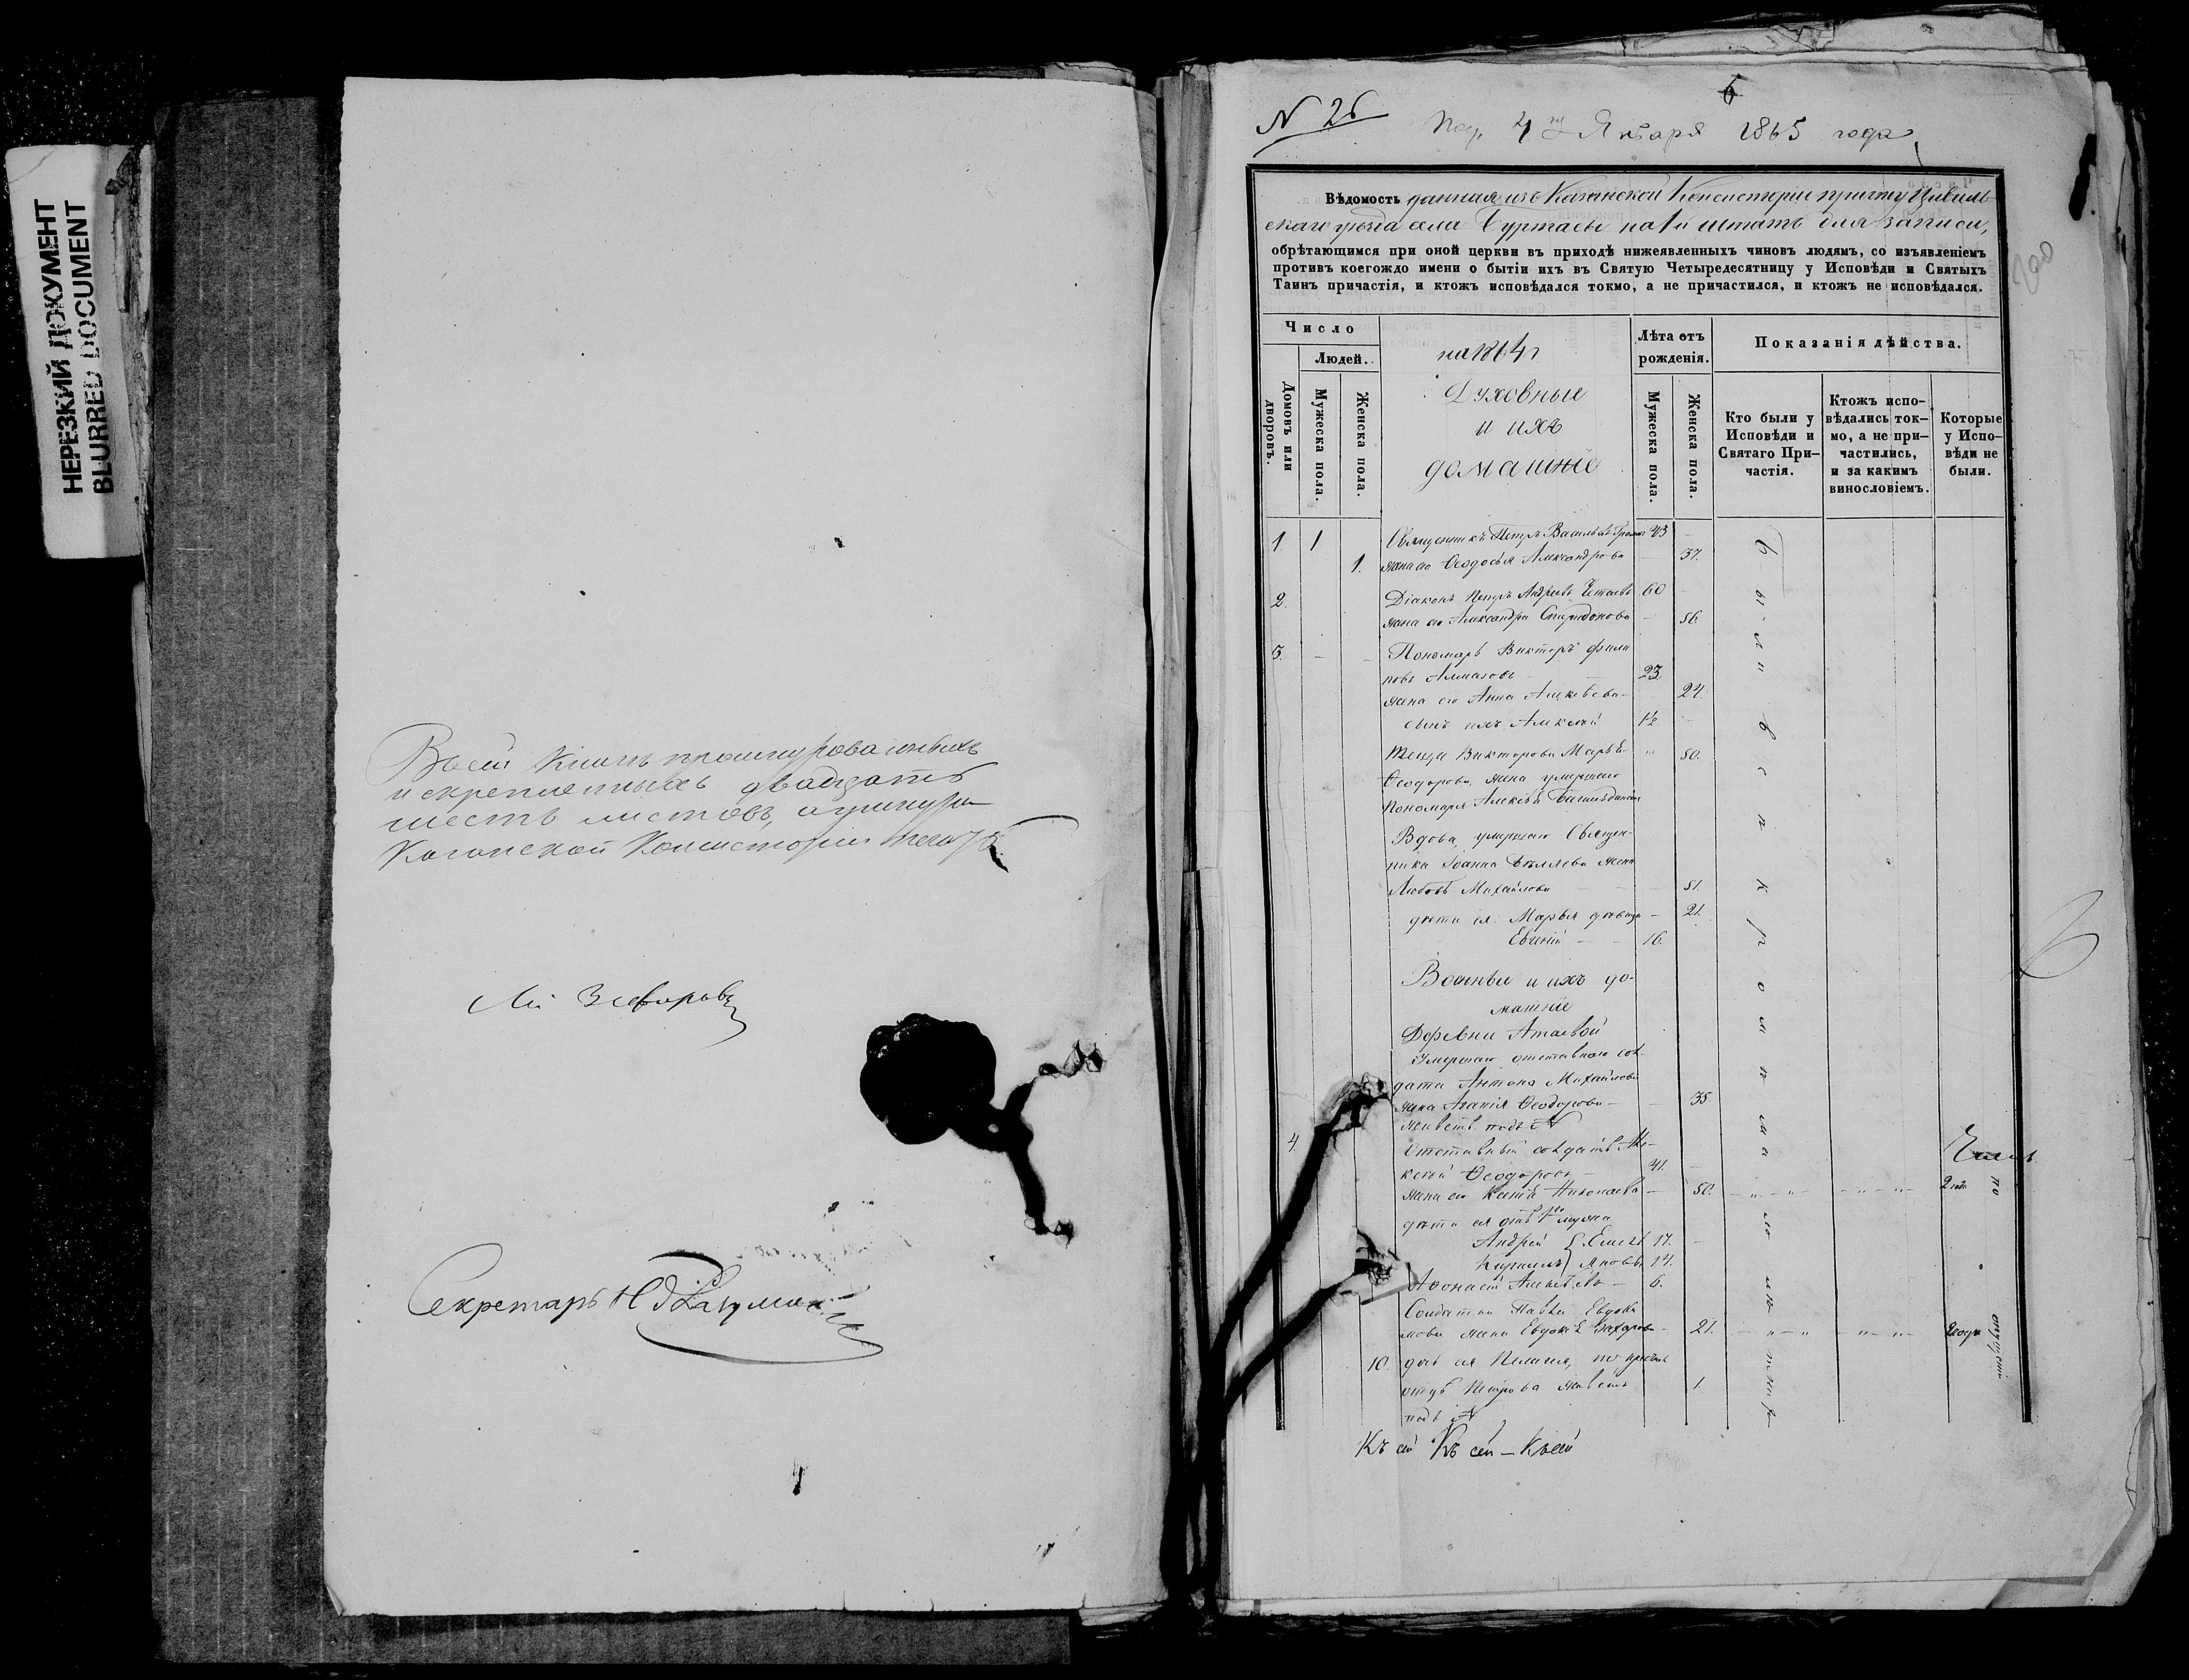 НЕРЕЗКИЙ ДОКУМЕНТ
BLURRED DOCUMENT
Въ сей книгѣ прошнурованныхъ
и скрепленныхъ двадцать
шесть листовъ, а шнуръ
Казанской Консисторіи
Секретарь
6
N 26
Пол. 4го Января 1865 года
Вѣдомость данная изъ Казанской Консисторіи причту Цивиль-
скаго уѣзда села Буртасы на 1й штатъ для записи,
обрѣтающимся при оной церкви въ приходѣ нижеявленныхъ чиновъ людямъ, со изъявленіемъ
противъ коегождо имени о бытіи ихъ въ Святую Четыредесятницу у Исповѣди и Святыхъ
Таинъ причастія, и ктожъ исповѣдался токмо, а не причастился, и ктожъ не исповѣдался.
Число
Людей.
Домовъ или дворовъ.
Мужеска пола.
Женска пола.
на 1864 г
Духовные
и ихъ
домашніе
Лѣта отъ рожденія.
Мужеска пола.
Женска пола.
Показанія дѣйства.
Кто были у Исповѣди и Святаго Причастія.
Ктожъ исповѣдались токмо, а не причастились, и за какимъ винословіемъ.
Которые у Исповѣди не были.
1 1 Священникъ Петръ Васильевъ 43
1. жена его Ѳеодосья Александрова 37.
2. Діаконъ Петръ Андреевъ 60
жена его Александра Спиридонова 56.
3. Пономарь Викторъ Фили
повъ Алмазовъ 23.
жена его Анна Алексѣева 24.
сынъ ихъ Алексѣй 1/2
Теща Викторова Марья 50.
Ѳеодорова, жена умершаго
Пономаря Алексѣя
Вдова умершаго Священ-
ника Іоанна Бѣляева жена
Любовь Михайлова 51.
дѣти ея. Марья дѣвица 21.
Евгеній 16.
Военные и ихъ до-
машніе
Деревни Атаевой
Умершаго отставнаго сол-
дата Антона Михайлова
жена Агапія Ѳеодорова 35.
живетъ подъ N
4. Отставный солдатъ Але-
ксѣй Ѳеодоровъ 41.
жена его Ксенія Николаева 50. 2 года
дѣти ея отъ 1го мужа
Андрей 17.
Кириллъ 14.
Аѳонасій Алексѣевъ 6.
Солдатки Павла Евдоки
мова жена Евдокія Захарова 21.
10. дочь ея Пелагея, по крестн.
отцѣ Петрова живетъ 1.
подъ N
Къ сей Къ сей – Къ сей